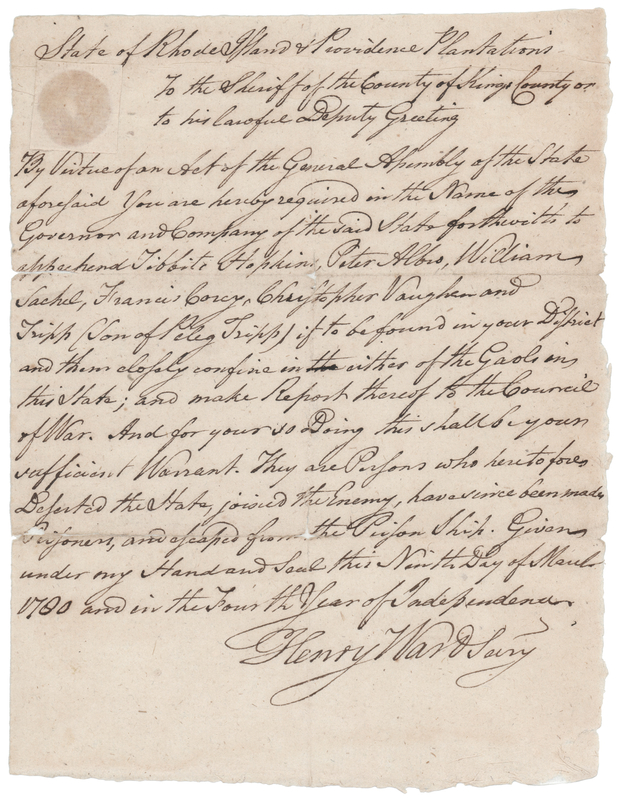 State of Rhode Island & Providence Plantations
To the Sheriff of the County of Kings County or
to his lawful Deputy Greeting
By Virtue of an Act of the General Assembly of the State
aforesaid You are hereby required in the Name of the
Governor and Company of the said State forthwith to
apprehend Tibbits Hopkins, Peter Albro, William
Sachel, Francis Corey, Christopher Vaughan and
Tripp (Son of Peleg Tripp) if to be found in your District
and them closely confine in the either of the Gaols in
this State; and make Report thereof to the Council
of War. And for your so Doing this shall be your
sufficient Warrant. They are Persons who heretofore
Deserted the State, joined the Enemy, have since been made
Prisoners, and escaped from the Prison Ship. Given
under my Hand and Seal this Ninth Day of March
1780 and in the Fourth Year of Independence.
Henry Ward Secry